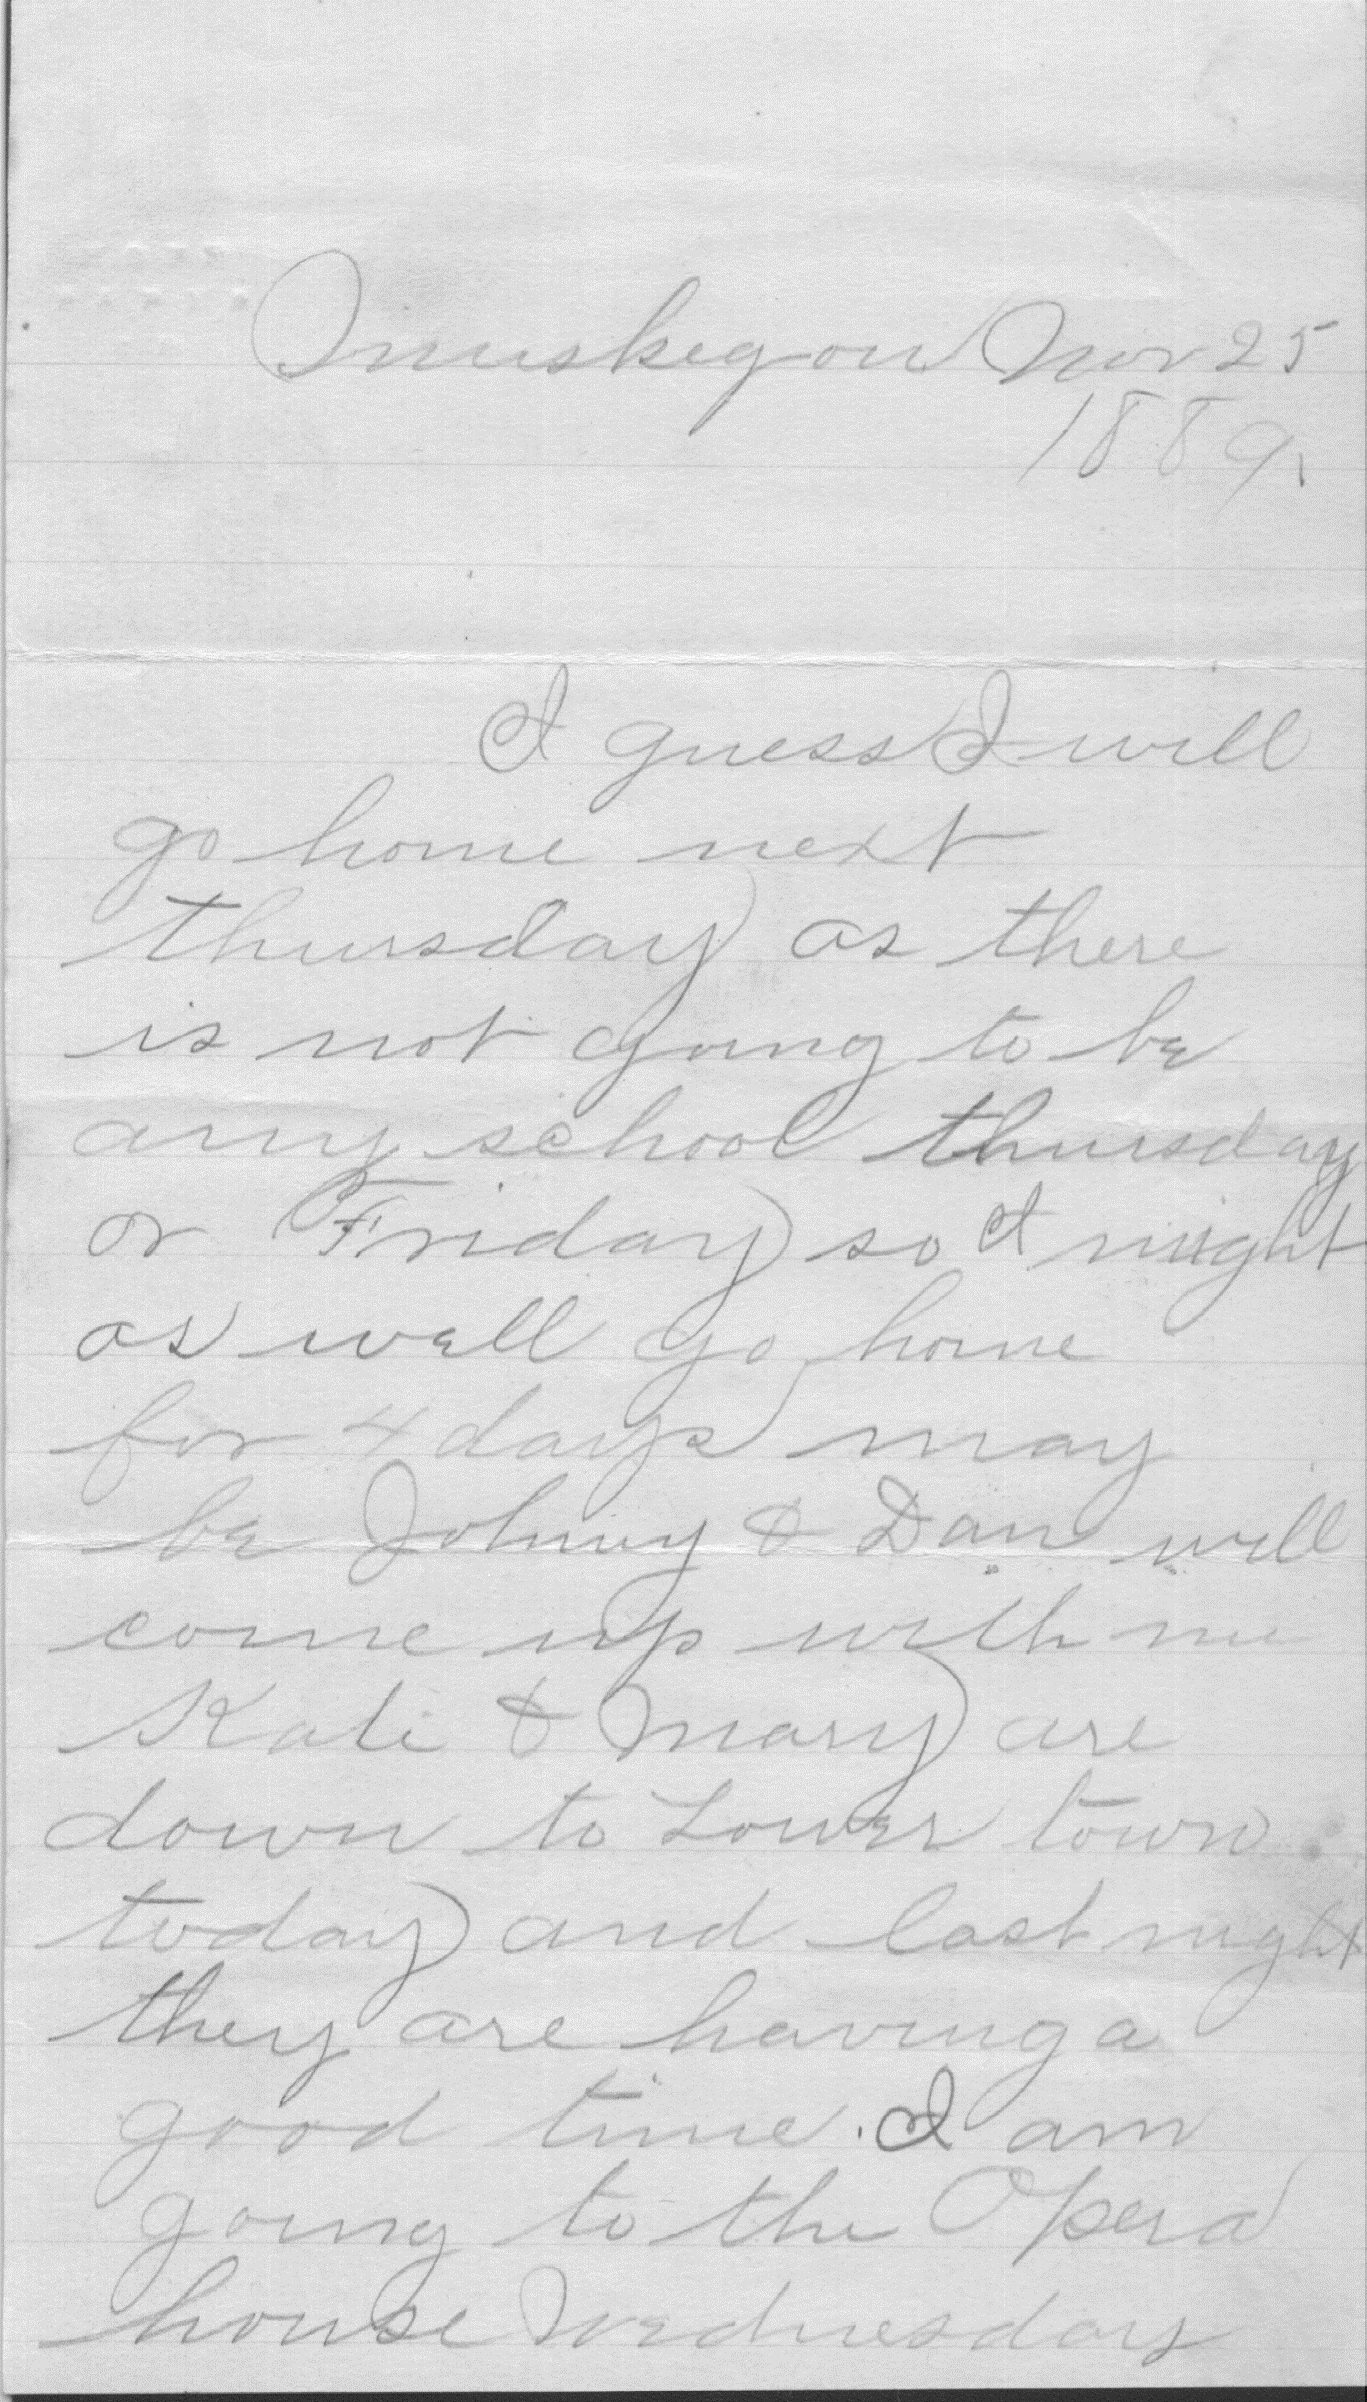 Muskegon Nov 25
1889.
I guess I will
go home next
thursday as there
is not going to be
any school thursday
or Friday so I might
as well go home
for 4 days may
be Johny & Dan will
come up with me
Kate & Mary are
down to Lower town
today and last night
they are having a
good time. I am
going to the Opera
house Wednesday